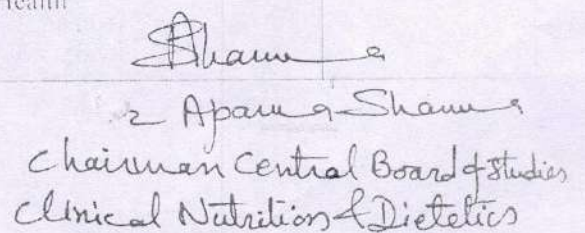 Health
Sharma
Aparna Sharma
Chairman Central Board of Studies
Clinical Nutrition & Dietetics